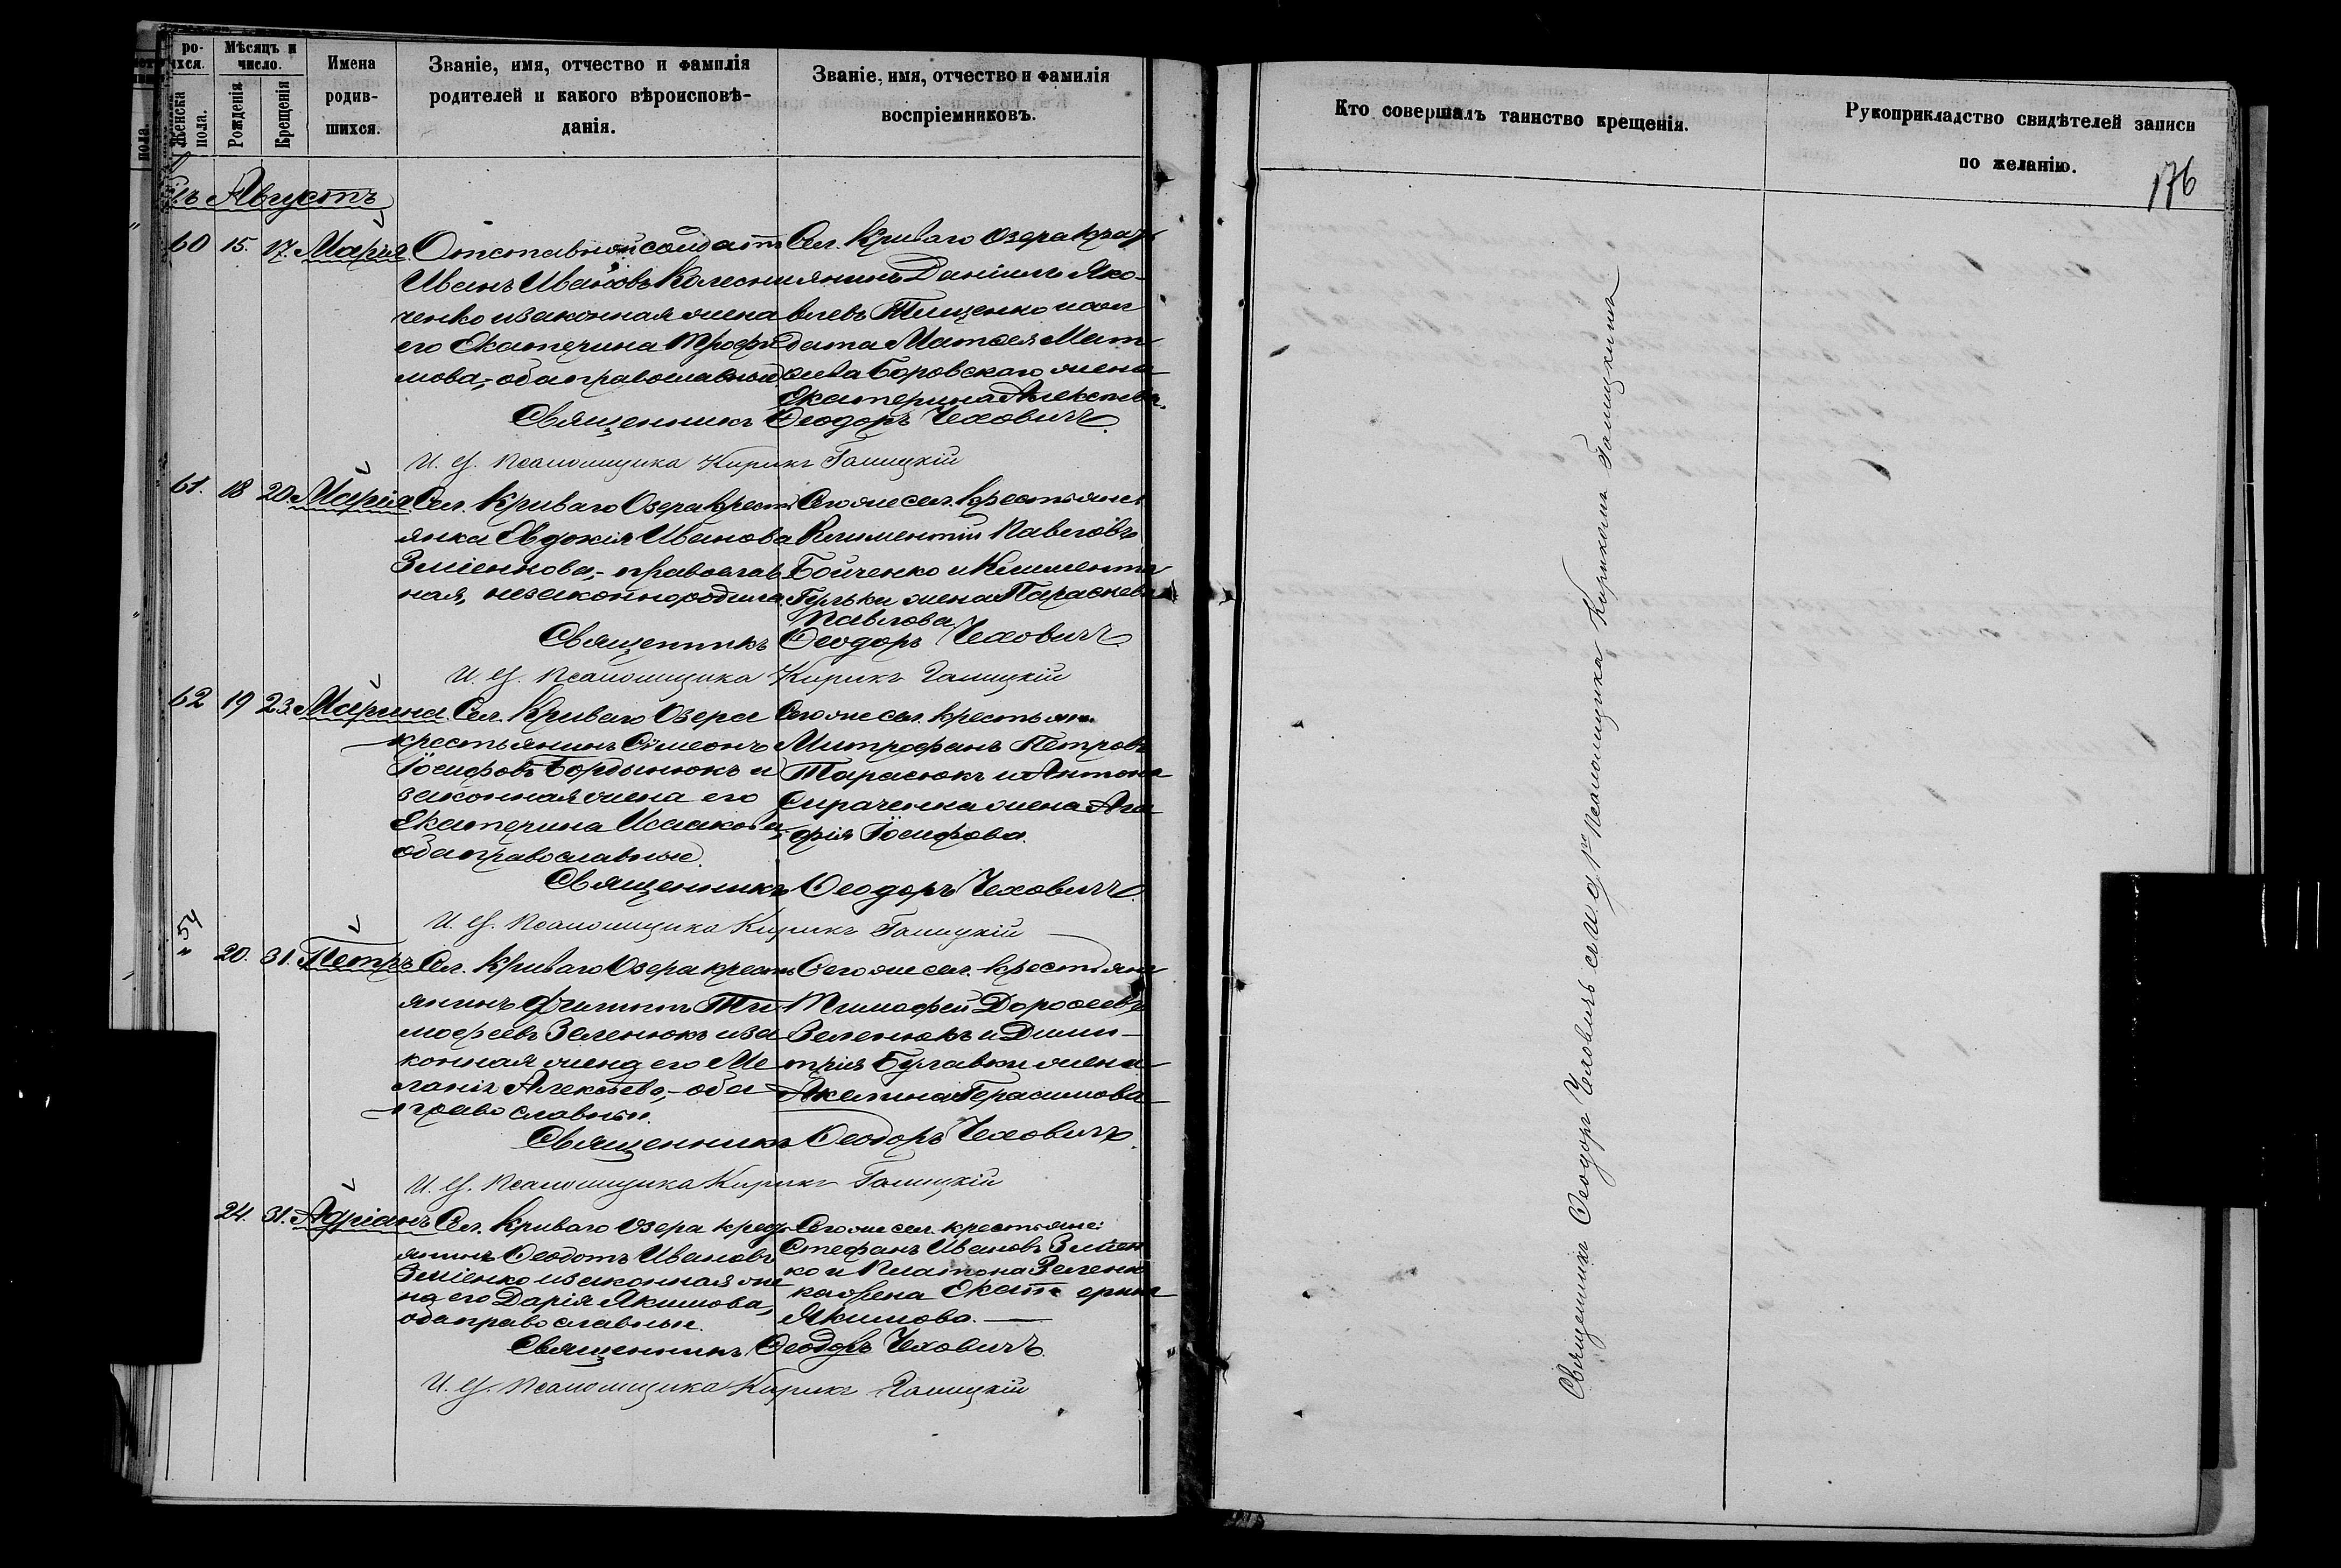 ро-
ихся.
Женска
пола.
Мѣсяцъ и
число.
Рожденія
Крещенія
Имена
родив-
шихся.
Званіе, имя, отчество и фамилія
родителей и какого вѣроисповѣ-
данія.
Званіе, имя, отчество и фамилія
воспріемниковъ.
Августъ
60 15. 17. Марія.
Отставной солдатъ
Иванъ Ивановъ Колесни
ченко и законная жена
его Екатерина Трофи
мова,- оба православной
Сел. Криваго Озера крест
янинъ Даніилъ Яко-
влевъ Тищенко и сол
дата Матѳея Мат
ѳеева Боровскаго жена
Екатерина Алексѣева.
Священникъ Ѳеодоръ Чеховичъ.
И. д. Псаломщика Кирикъ Галицкій
61. 18 20. Марія
Сел. Криваго Озера крест
янка Евдокія Иванова
Зміенкова,- православ
ная, незаконнородила.
Того же сел. крестьяне:
Климентій Павловъ
Бойченко и Климента
Гульки жена Параскева
Павлова
Священникъ Ѳеодоръ Чеховичъ
И. д. Псаломщика Кирикъ Галицкій
62 19 23. Марина.
Сел. Криваго Озера
крестьянинъ Симеонъ
Іосифовъ Бордынюкъ и
законная жена его
Екатерина Исаакова,
оба православные.
Того же сел. крестьян.
Митрофанъ Петровъ
Тарасюкъ и Антона
жена Ага
фія Іосифова.
Священникъ Ѳеодоръ Чеховичъ
И. д. Псаломщика Кирикъ Галицкій
54 " 20. 31. Петръ
Сел. Криваго Озера крест
янинъ Филиппъ Ти
моѳеевъ Зеленюкъ и за
конная жена его Ме
ланія Алексѣева,- оба
православныи.
Того же сел. крестьяне
Тимофей Дороѳеевъ
Зеленюкъ и Дими-
трія Булавки жена
Акелина Герасимова
Священникъ Ѳеодоръ Чеховичъ.
И. д. Псаломщика Кирикъ Галицкій
24. 31. Адріанъ
Сел. Криваго Озера крест
янинъ Ѳеодотъ Ивановъ
Зміенко и законная же
на его Дарія Якимова,
оба православные.
Того же сел. крестьяне:
Стефанъ Ивановъ Зміен
ко и Платона Зеленю
ка жена Екатерина
Якимова.
Священникъ Ѳеодоръ Чеховичъ.
И. д. Псаломщика Кирикъ Галицкій
Кто совершалъ таинство крещенія.
Рукоприкладство свидѣтелей записи
по желанію.
176
Священникъ Ѳеодоръ Чеховичъ съ и. д. Псаломщика Кирикомъ Галицкимъ